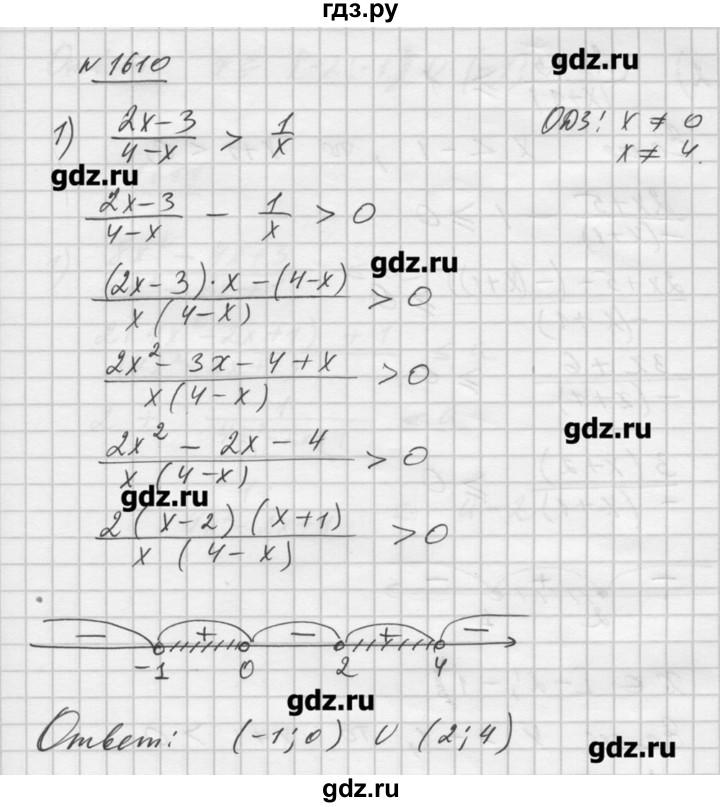 гдз.ру
№ 1610
gdz.ru
1) (2x-3)/(4-x) > 1/x
ОДЗ! x ≠ 0
x ≠ 4.
gdz.ru
(2x-3)/(4-x) - 1/x > 0
gdz.ru
((2x-3)·x-(4-x))/(x(4-x)) > 0
(2x²-3x-4+x)/(x(4-x)) > 0
gdz.ru
(2x²-2x-4)/(x(4-x)) > 0
gdz.ru
(2(x-2)(x+1))/(x(4-x)) > 0
- + - + -
-1 0 2 4
gdz.ru
Ответ: (-1;0) ∪ (2;4)
gdz.ru
gdz.ru